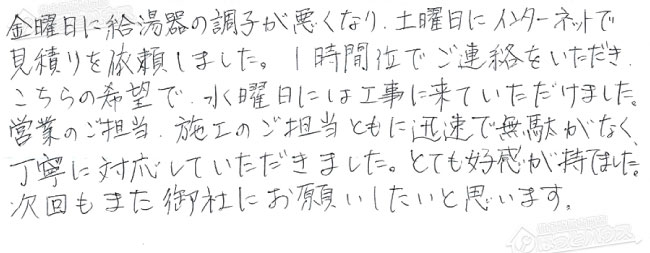 金曜日に給湯器の調子が悪くなり、土曜日にインターネットで
見積りを依頼しました。1時間位でご連絡をいただき、
こちらの希望で、水曜日には工事に来ていただけました。
営業のご担当、施工のご担当ともに迅速で無駄がなく、
丁寧に対応していただきました。とても好感が持てました。
次回もまた御社にお願いしたいと思います。